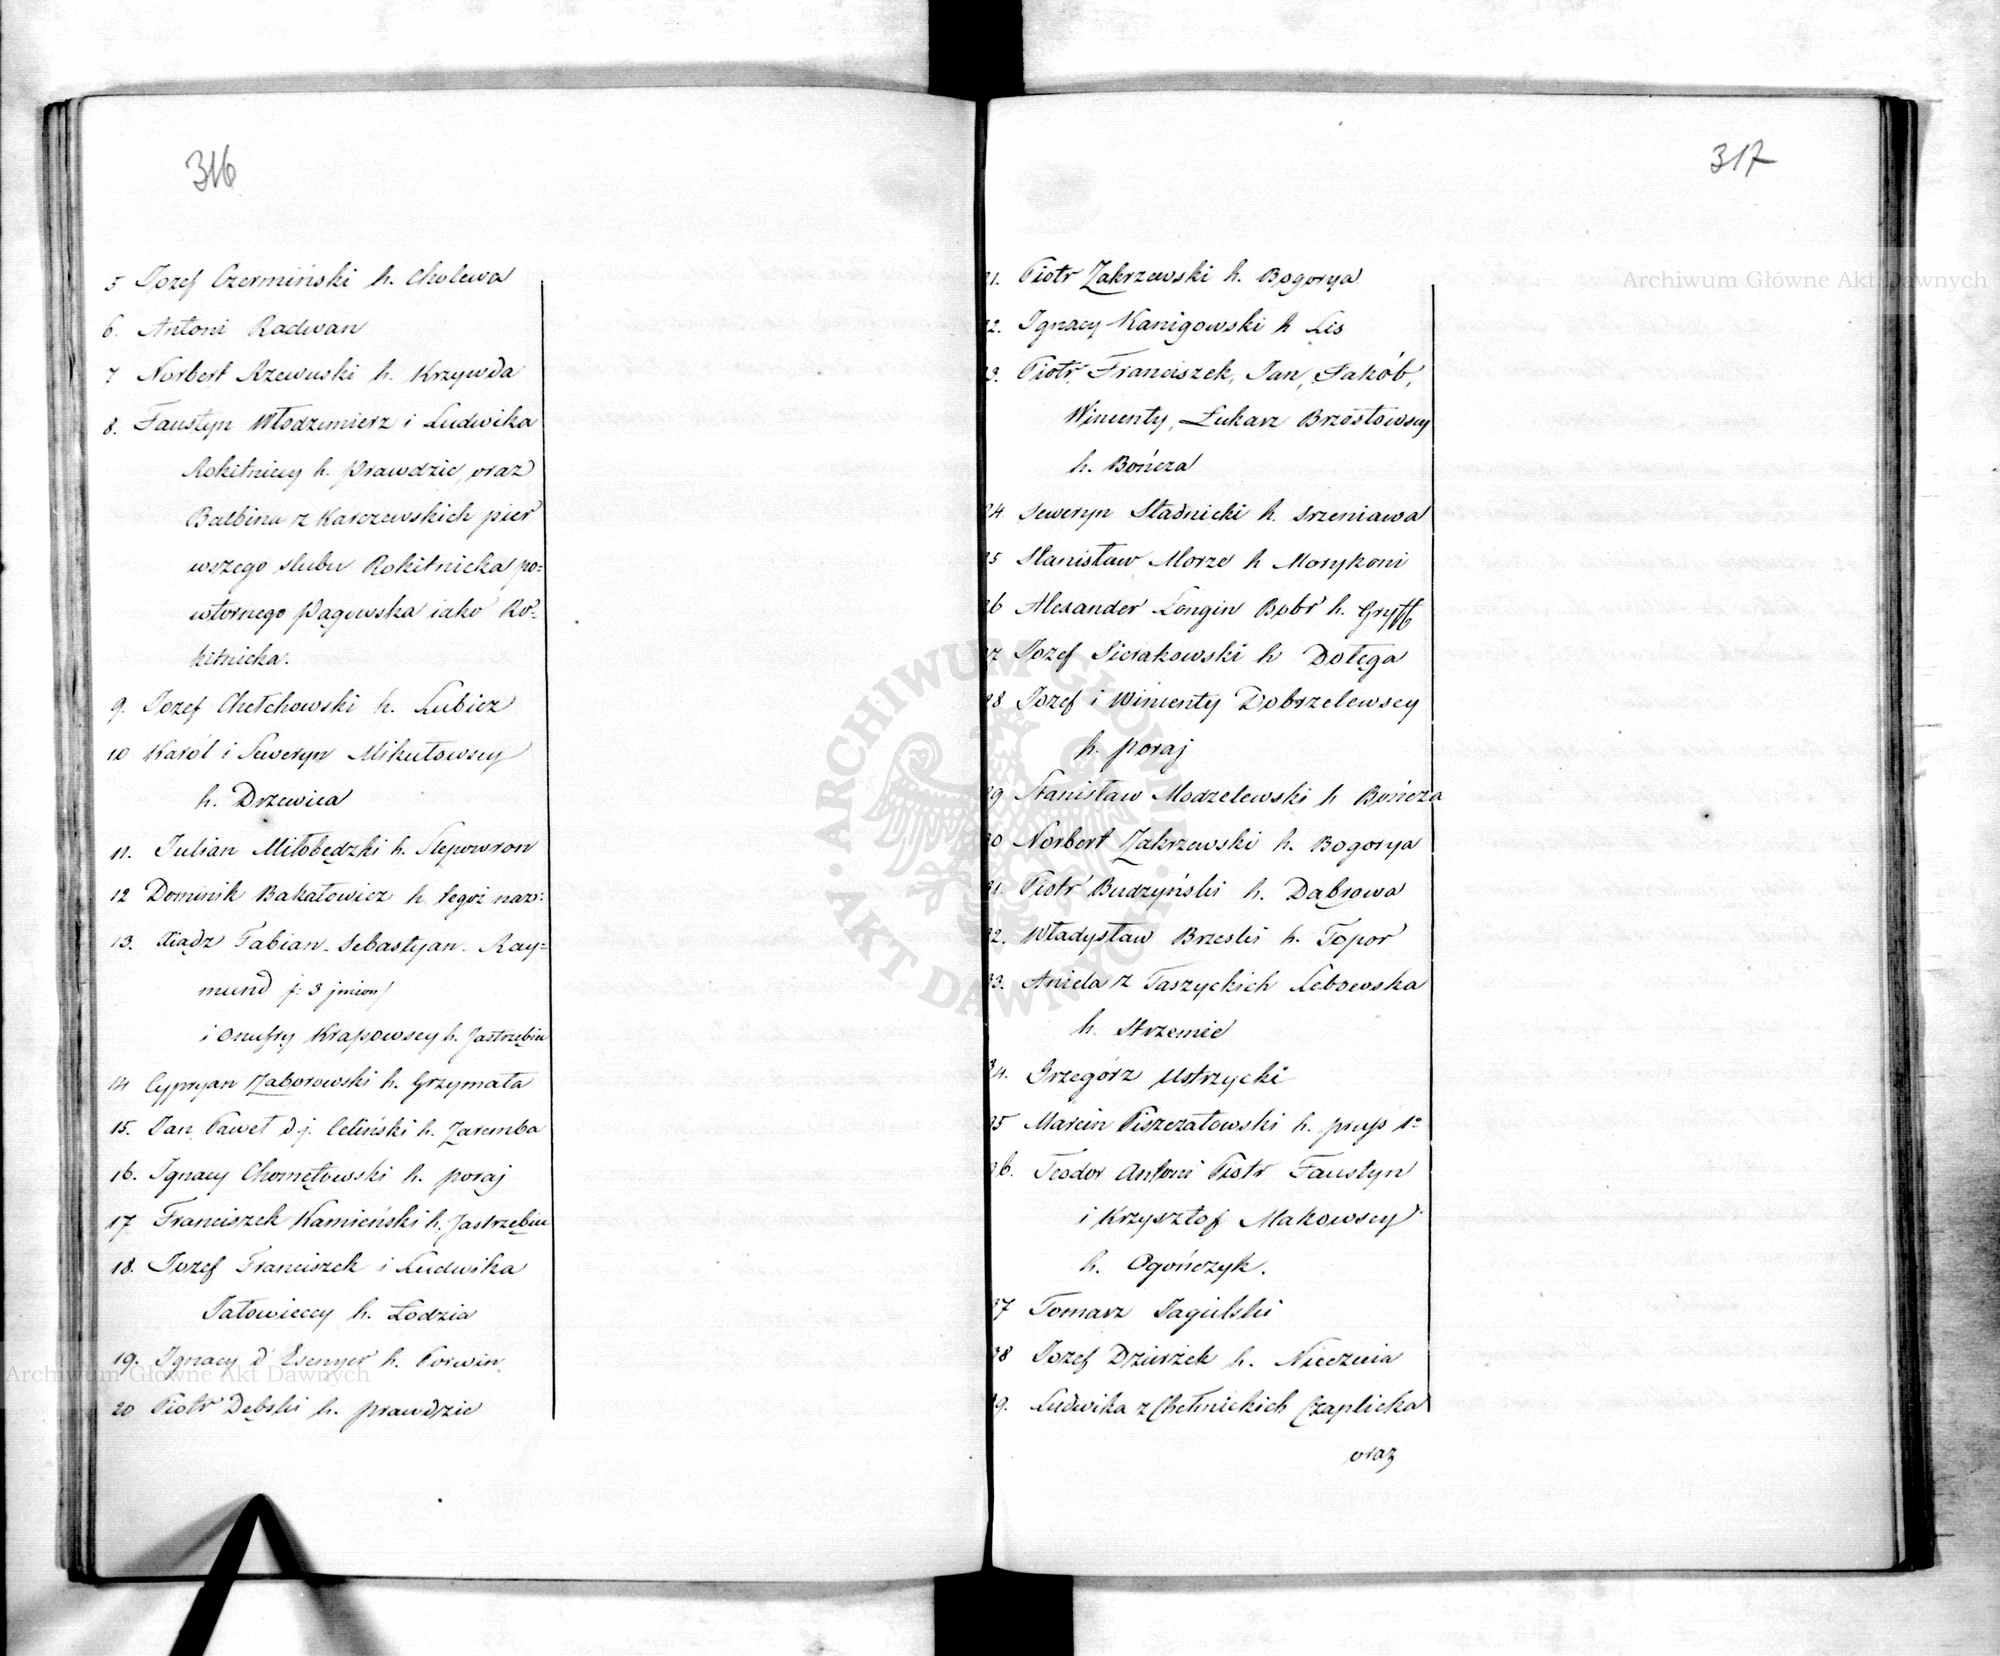 316
5 Jozef Czermiński h. Cholewa
6. Antoni Radwan
7 Norbert Rzewuski h. Krzywda
8. Faustyn Włodzimierz i Ludwika
Rokitniccy h. Prawdzic, oraz
Balbina z Karczewskich pier
wszego slubu Rokitnicka po=
wtornego Pągowska iako Ro=
kitnicka.
9. Jozef Chełchowski h. Lubicz
10 Karól i Seweryn Mikułowscy
h. Drzewica
11. Julian Miłobędzki h. Slepowron
12 Dominik Bakałowicz h. tegoż nazw:
13. Xiądz Fabian Sebastyan Ray=
mund /: 3 jmion/
i Onufry Krapowscy h. Jastrzębiec
14 Cypryan Zaborowski h. Grzymała
15. Jan Paweł d.j. Celiński h. Zaremba
16. Ignacy Chomętowski h. Poraj
17 Franciszek Kamieński h. Jastrzębiec
18. Jozef Franciszek i Ludwika
Jałowieccy h. Łodzia
19. Ignacy d' Esenyer h. Korwin
20 Piotr Dębski h. Prawdzic
317
21. Piotr Zakrzewski h. Bogorya
22. Ignacy Kanigowski h Lis
23. Piotr, Franciszek, Jan, Jakób,
Wincenty, Łukarz Brzostowscy
h. Bończa
24 Seweryn Stadnicki h. Srzeniawa
25 Stanisław Morze h Morykoni
26 Alexander Longin Bobr h. Gryff
27 Jozef Sierakowski h Dołęga
28 Jozef i Wincenty Dobrzelewscy
h. Poraj
29 Stanisław Modzelewski h Bończa
30 Norbert Zakrzewski h. Bogorya
31. Piotr Budzyński h. Dąbrowa
32. Władysław Brzeski h. Topor
33. Aniela z Taszyckich Łebowska
h. Strzemie
34. Grzegórz Ustrzycki
35 Marcin Piszczatowski h. prus 1º
36. Teodor Antoni Piotr Faustyn
i Krzysztof Makowscy
h. Ogończyk.
37 Tomasz Jagielski
38 Jozef Dziurżek h. Nieczuia
39. Ludwika z Chełmickich Czaplicka
oraz
Archiwum Główne Akt Dawnych
Archiwum Główne Akt Dawnych
ARCHIWUM GŁÓWNE AKT DAWNYCH